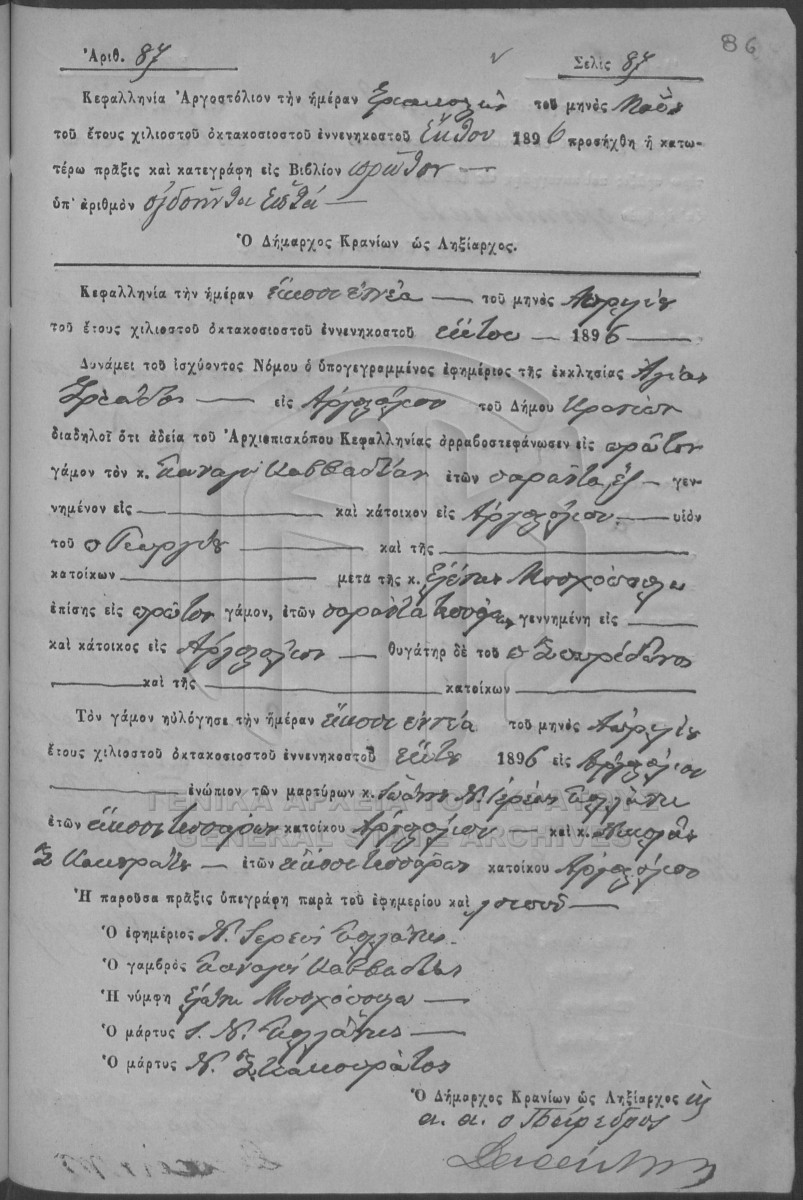 86
Ἀριθ. 87 Σελὶς 87
Κεφαλληνία Ἀργοστόλιον τὴν ἡμέραν τοῦ μηνὸς Μαΐου
τοῦ ἔτους χιλιοστοῦ ὀκτακοσιοστοῦ ἐννενηκοστοῦ ἕκτου 1896 προσήχθη ἡ κατω-
τέρω πρᾶξις καὶ κατεγράφη εἰς Βιβλίον πρῶτον
ὑπ' ἀριθμὸν ὀγδοῆντα ἑπτά
Ὁ Δήμαρχος Κρανίων ὡς Ληξίαρχος.
Κεφαλληνία τὴν ἡμέραν εἴκοσι ἐννέα τοῦ μηνὸς Ἀπριλίου
τοῦ ἔτους χιλιοστοῦ ὀκτακοσιοστοῦ ἐννενηκοστοῦ ἕκτου 1896
Δυνάμει τοῦ ἰσχύοντος Νόμου ὁ ὑπογεγραμμένος ἐφημέριος τῆς ἐκκλησίας Ἁγίας
Τριάδος εἰς Ἀργοστόλιον τοῦ Δήμου Κρανίων
διαδηλοῖ ὅτι ἀδεία τοῦ Ἀρχιεπισκόπου Κεφαλληνίας ἀρραβοστεφάνωσεν εἰς πρῶτον
γάμον τὸν κ. Παναγῆ Καββαδίαν ἐτῶν σαράντα ἕξ γεν-
νημένον εἰς καὶ κάτοικον εἰς Ἀργοστόλιον υἱὸν
τοῦ π Γεωργίου καὶ τῆς
κατοίκων μετα τῆς κ. Ἑλένης Μοσχόπουλου
ἐπίσης εἰς πρῶτον γάμον, ἐτῶν σαράντα γεννημένη εἰς
καὶ κάτοικος εἰς Ἀργοστόλιον θυγάτηρ δὲ τοῦ π Σπυρίδωνος
καὶ τῆς κατοίκων
Τὸν γάμον ηὐλόγησε τὴν ἡμέραν εἴκοσι ἐννέα τοῦ μηνὸς Ἀπριλίου
ἔτους χιλιοστοῦ ὀκτακοσιοστοῦ ἐννενηκοστοῦ ἕκτου 1896 εἰς Ἀργοστόλιον
ἐνώπιον τῶν μαρτύρων κ. Ἰωάννη Ν. Ἱερέως
ΓΕΝΙΚΑ ΑΡΧΕΙΑ ΤΟΥ ΚΡΑΤΟΥΣ
ἐτῶν εἴκοσι τεσσάρων κατοίκου Ἀργοστολίου καὶ κ. Νικολάου
GENERAL STATE ARCHIVES
Σ Κακουράτου ἐτῶν εἴκοσι τεσσάρων κατοίκου Ἀργοστολίου
Ἡ παροῦσα πρᾶξις ὑπεγράφη παρὰ τοῦ ἐφημερίου καὶ λοιπῶν
Ὁ ἐφημέριος Ν. Ἱερεὺς
Ὁ γαμβρὸς Παναγῆς Καββαδίας
Ἡ νύμφη Ἑλένη Μοσχόπουλου
Ὁ μάρτυς Ι. Ν.
Ὁ μάρτυς Ν. Σ Κακουράτος
Ὁ Δήμαρχος Κρανίων ὡς Ληξίαρχος
α. α. ο Πάρεδρος